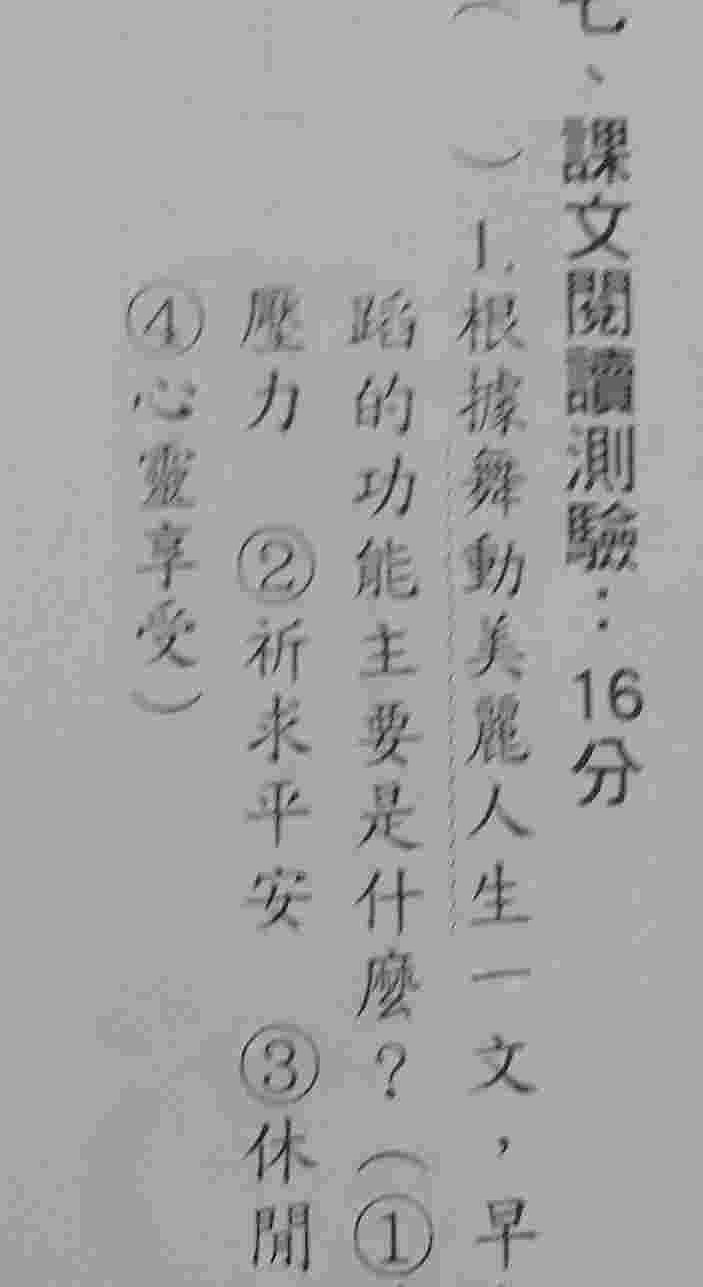 七、課文閱讀測驗：16分
（　）1.根據舞動美麗人生一文，早
蹈的功能主要是什麼？（①
壓力　②祈求平安　③休閒
④心靈享受）